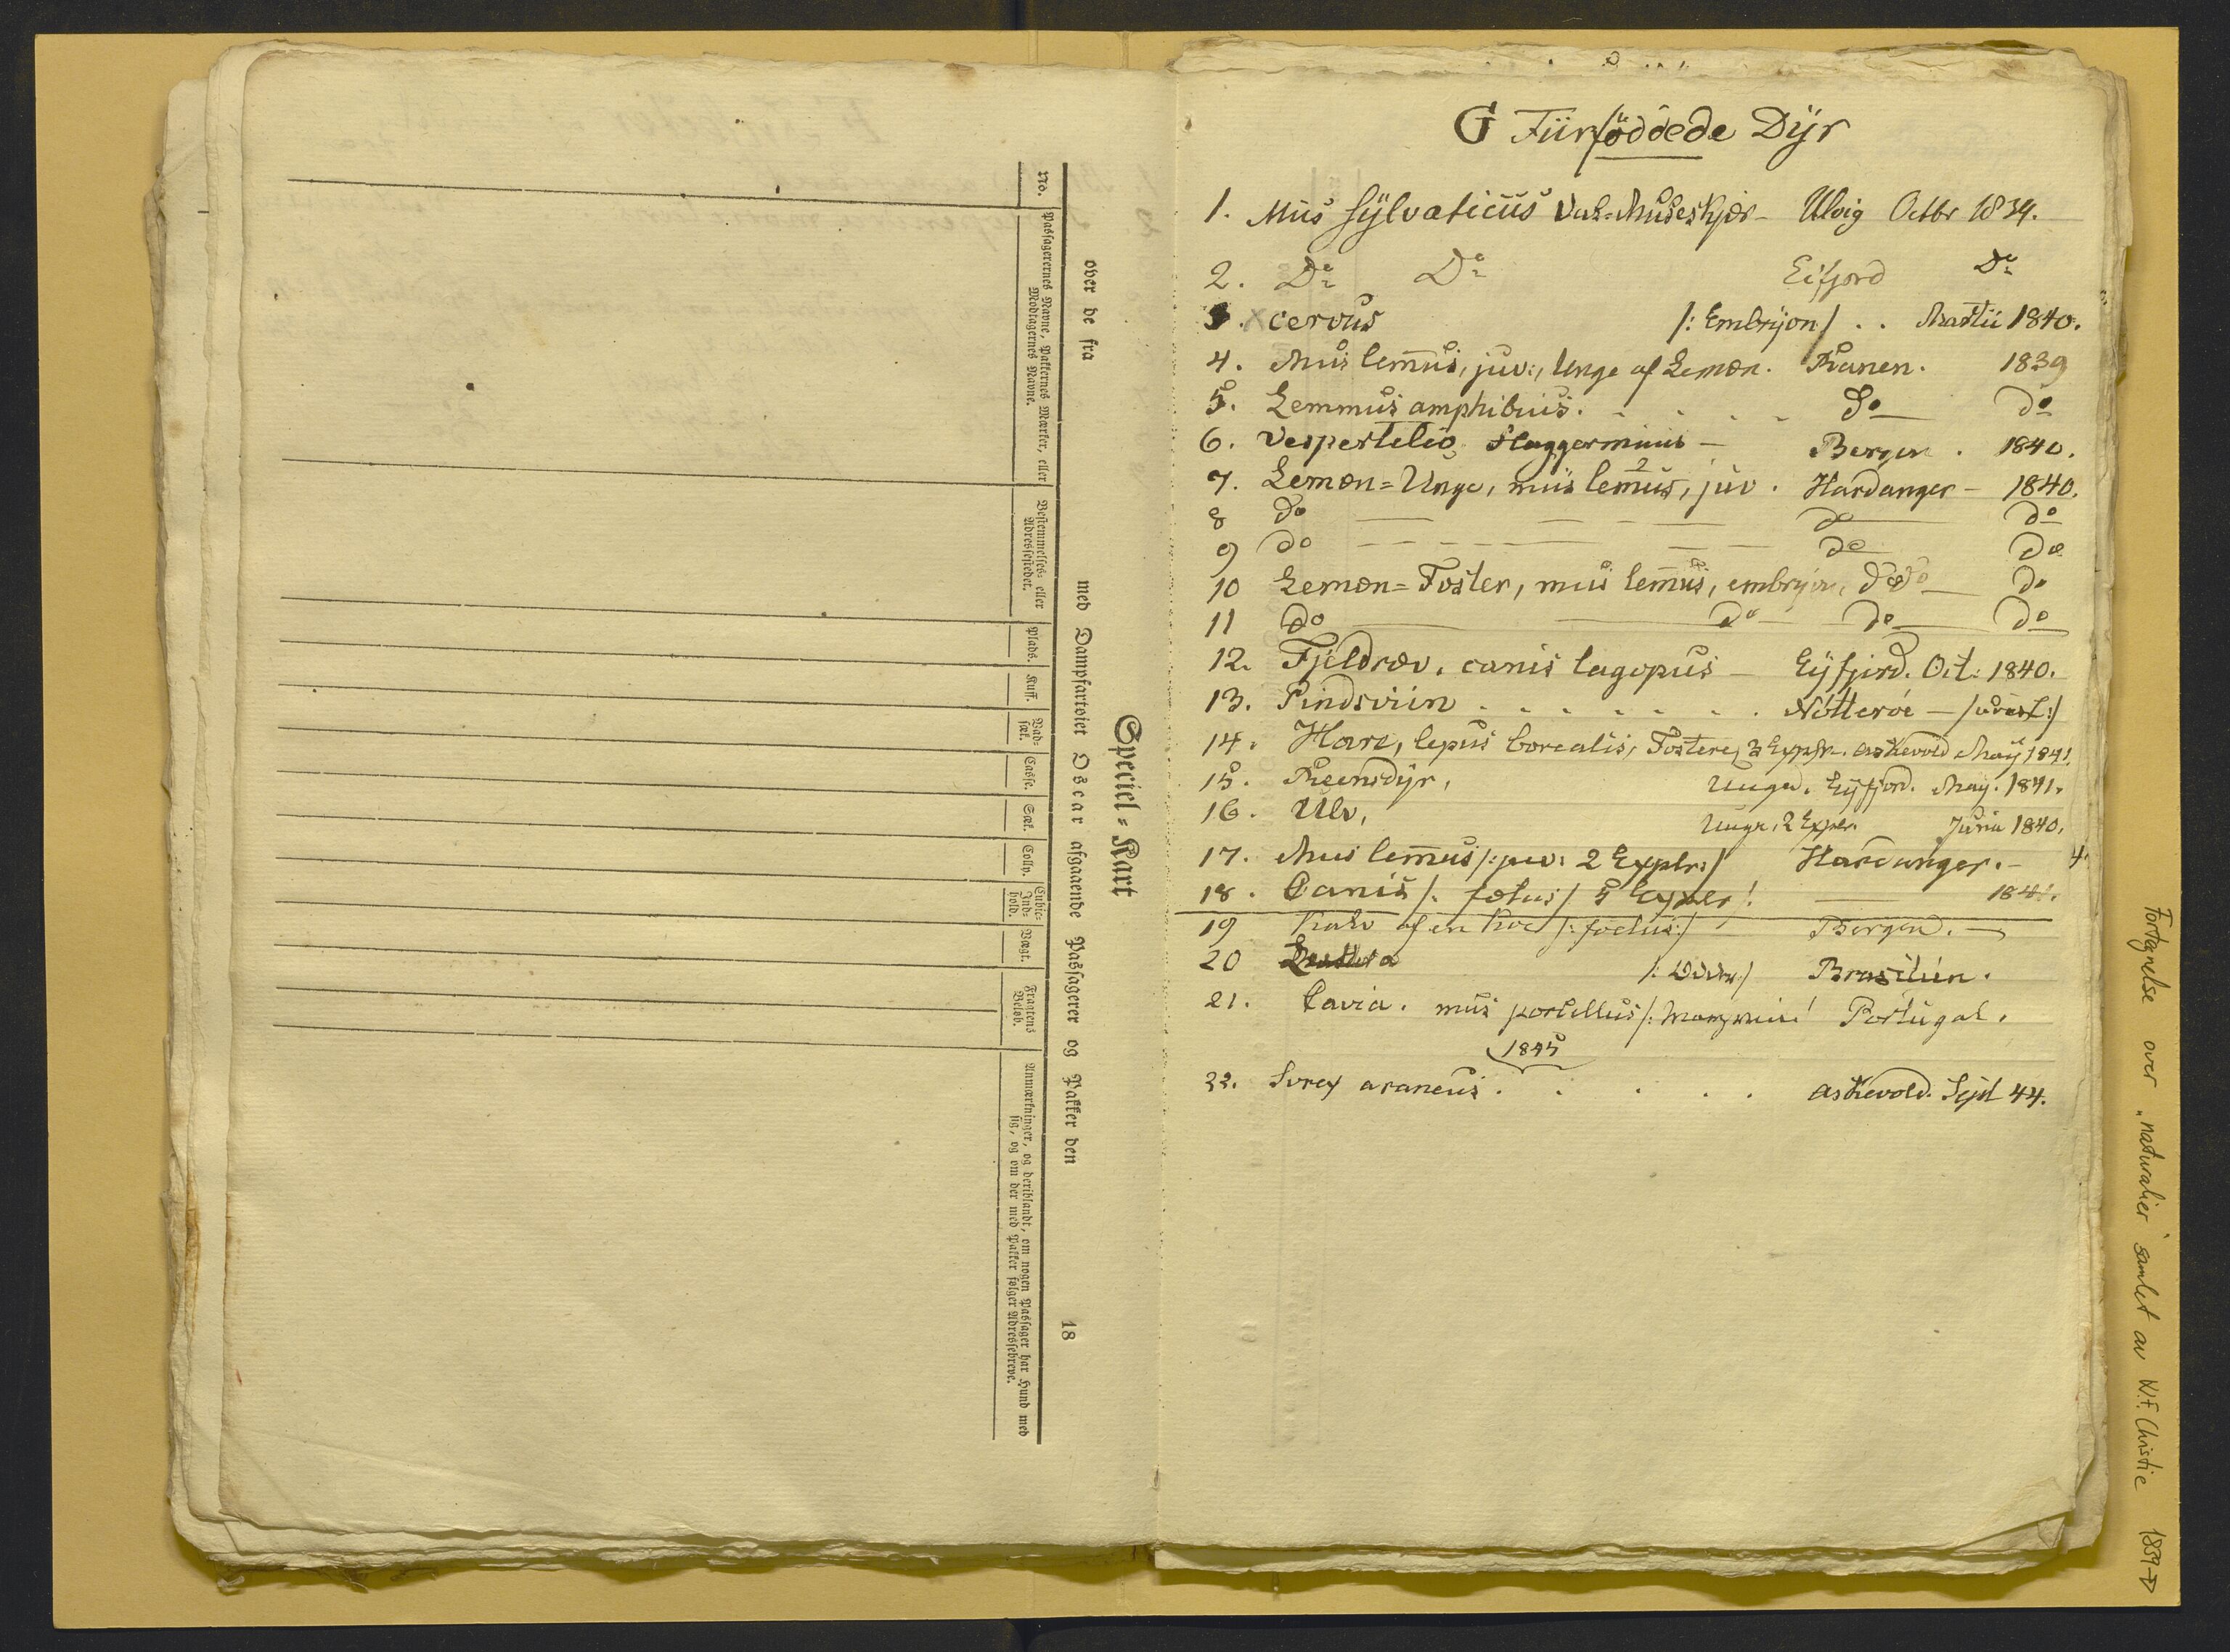 Speciel-Kart
over de fra med Dampfartøiet Oscar afgaaende Passagerer og Pakker den 18
No.
Passagerernes Navne, Pakkernes Mærker, eller
Modtagernes Navne.
Bestemmelses- eller
Adressestedet.
Plads.
Kuff.
Vad-
sæk.
Casse.
Sæk.
Colly.
Cubic-
Ind-
hold.
Vægt.
Fragtens
Beløb.
Anmærkninger, og deriblandt, om nogen Passager har Hund med
sig, og om der med Pakker følger Adressebreve.
G Fiirföddede Dÿr
1. Mus Sÿlvaticus Ulvig Octbr 1834.
2. Do Do Eifjord Do
3. X cervus /: Embrÿon / . . Martii 1840.
4. Mus lemus, juv:, Unge af Lemæn. Ranen. 1839
5. Lemmus amphibius. - - - - do do
6. Vespertilio Flaggermuus - Bergen. 1840.
7. Lemæn=Unge, mus lemus, juv. Hardanger - 1840.
8 do — — — do do
9 do — — — do do
10 Lemæn=Foster, mus lemus, embrÿon, do do
11 do — do — do — do
12. Fjeldræv, canis lagopus - Eÿfjord. Oct: 1840.
13. Pindsviin - - - - - - - Nötteröe - / udvüst:/
14. Hare, lepus borealis, Fostere, 3 Expl. Askevold Maÿ 1841.
15. Reensdÿr, Unge. Eÿfjord. Maÿ. 1841.
16. Ulv, Unge, 2 Expler. Juni 1840.
17. Mus lemus /:juv: 2 Explr:/ Hardanger. - 4
18. Canis /: fœtus / 5 Expler / — 1841.
19 Kalv af en Koe /: foetus:/ Bergen. —
20 /: Odder:/ Brasilien.
21. Cavia. mus porcellus /: Portugal.
1845
22. Sorex araneus. . . . . Askevold. Sept 44.
Fortegnelse over "naturalier" samlet av W.F. Christie 1834→